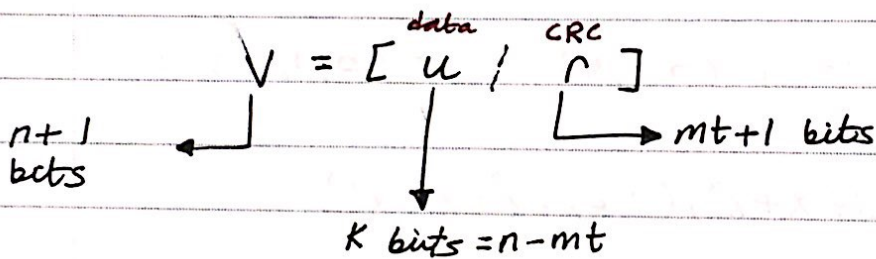 data CRC
V = [ u / r ]
n+1 bits
mt+1 bits
K bits = n-mt